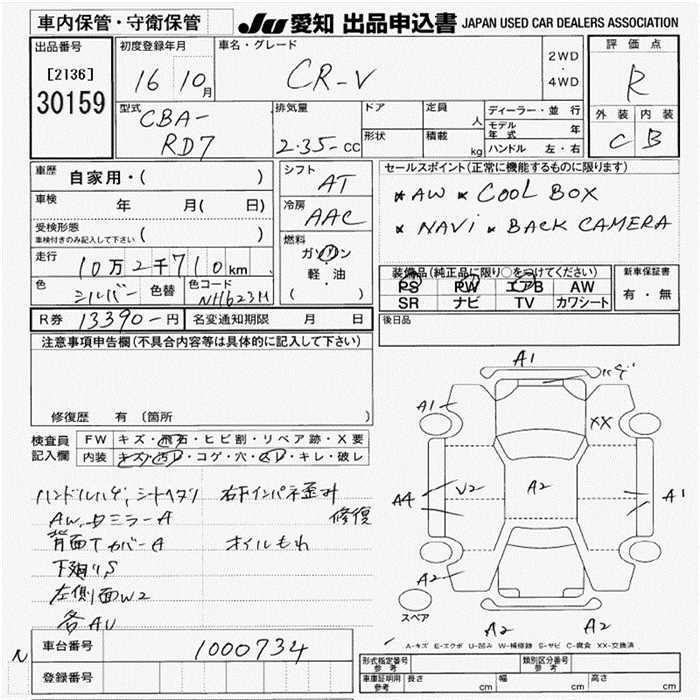 車内保管・守衛保管
JU 愛知 出品申込書 JAPAN USED CAR DEALERS ASSOCIATION
出品番号
[2136]
30159
初度登録年月
16 10月
車名・グレード
CR-V
2WD
・
4WD
評価点
R
外装 内装
C B
型式
CBA-
RD7
排気量
2.35-cc
ドア
定員 人
形状
積載 kg
ディーラー・並行
モデル年式 年
ハンドル 左・右
車歴
自家用・( )
車検 年 月( 日)
受検形態
車検付きのみ記入して下さい ( )
走行
10万2千710km
色 シルバー 色替 色コード NH623M
シフト
AT
冷房
AAC
燃料
ガソリン
・
軽油
( )
セールスポイント(正常に機能するものに限ります)
*AW *COOL BOX
*NAVi *BACK CAMERA
装備品(純正品に限り○をつけてください)
PS PW エアB AW
SR ナビ TV カワシート
新車保証書
有・無
R券 13390-円 名変通知期限 月 日
後日品
注意事項申告欄(不具合内容等は具体的に記入して下さい)
修復歴 有〔箇所 〕
検査員記入欄
FW キズ・飛石・ヒビ割・リペア跡・X要
内装 キズ・汚レ・コゲ・穴・スレ・キレ・破レ
ハンドルハゲ,シートヘタリ 右下インパネ歪み
AW,ドミラーA 修復
背面TカバーA オイルもれ
下廻リS
左側面W2
各AU
A1
ハゲ
A1
XX
A4
U2
A2
A1
A2
スペア
A2
A2
A-キズ E-エクボ U-凹み W-補修跡 S-サビ C-腐食 XX-交換済
N
車台番号 1000734
登録番号
形式指定番号 参考 類別区分番号 参考
車庫証明用 参考 長さ cm 幅 cm 高さ cm